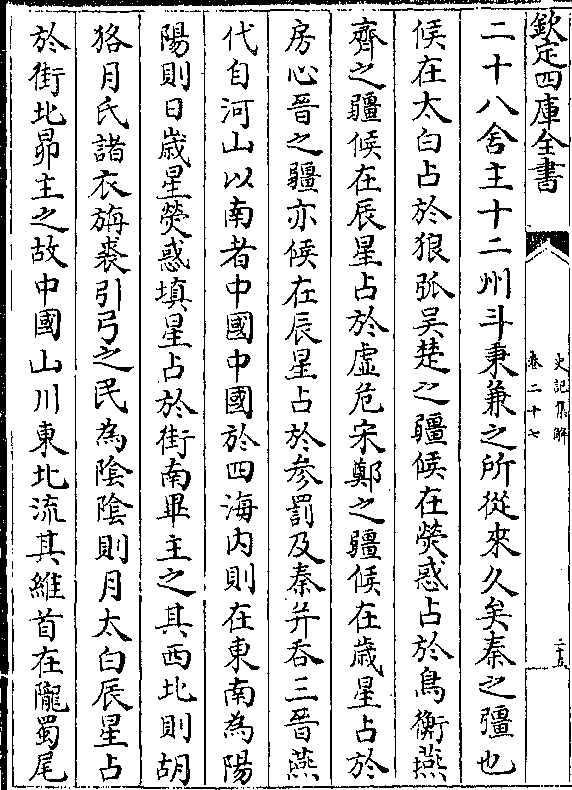 欽定四庫全書
史記集解
卷二十七
三五
二十八舍主十二州斗秉兼之所從來久矣秦之彊也
候在太白占於狼弧吳楚之疆候在熒惑占於鳥衡燕
齊之疆候在辰星占於虛危宋鄭之疆候在歲星占於
房心晉之疆亦候在辰星占於參罰及秦并吞三晉燕
代自河山以南者中國中國於四海内則在東南為陽
陽則日歲星熒惑填星占於街南畢主之其西北則胡
狢月氏諸衣旃裘引弓之民為陰陰則月太白辰星占
於街北昴主之故中國山川東北流其維首在隴蜀尾